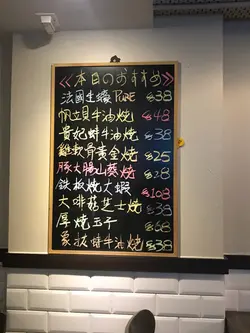 <<本日のおすすめ>>
法國生蠔 PURE $38
帆立貝牛油燒 $48
貴妃蚌牛油燒 $38
雞軟骨黃金燒 $25
豚大腸山葵燒 $28
鉄板燒大蝦 $108
大啡菇芝士燒 $38
厚燒玉子 $68
象拔蚌牛油燒 $38